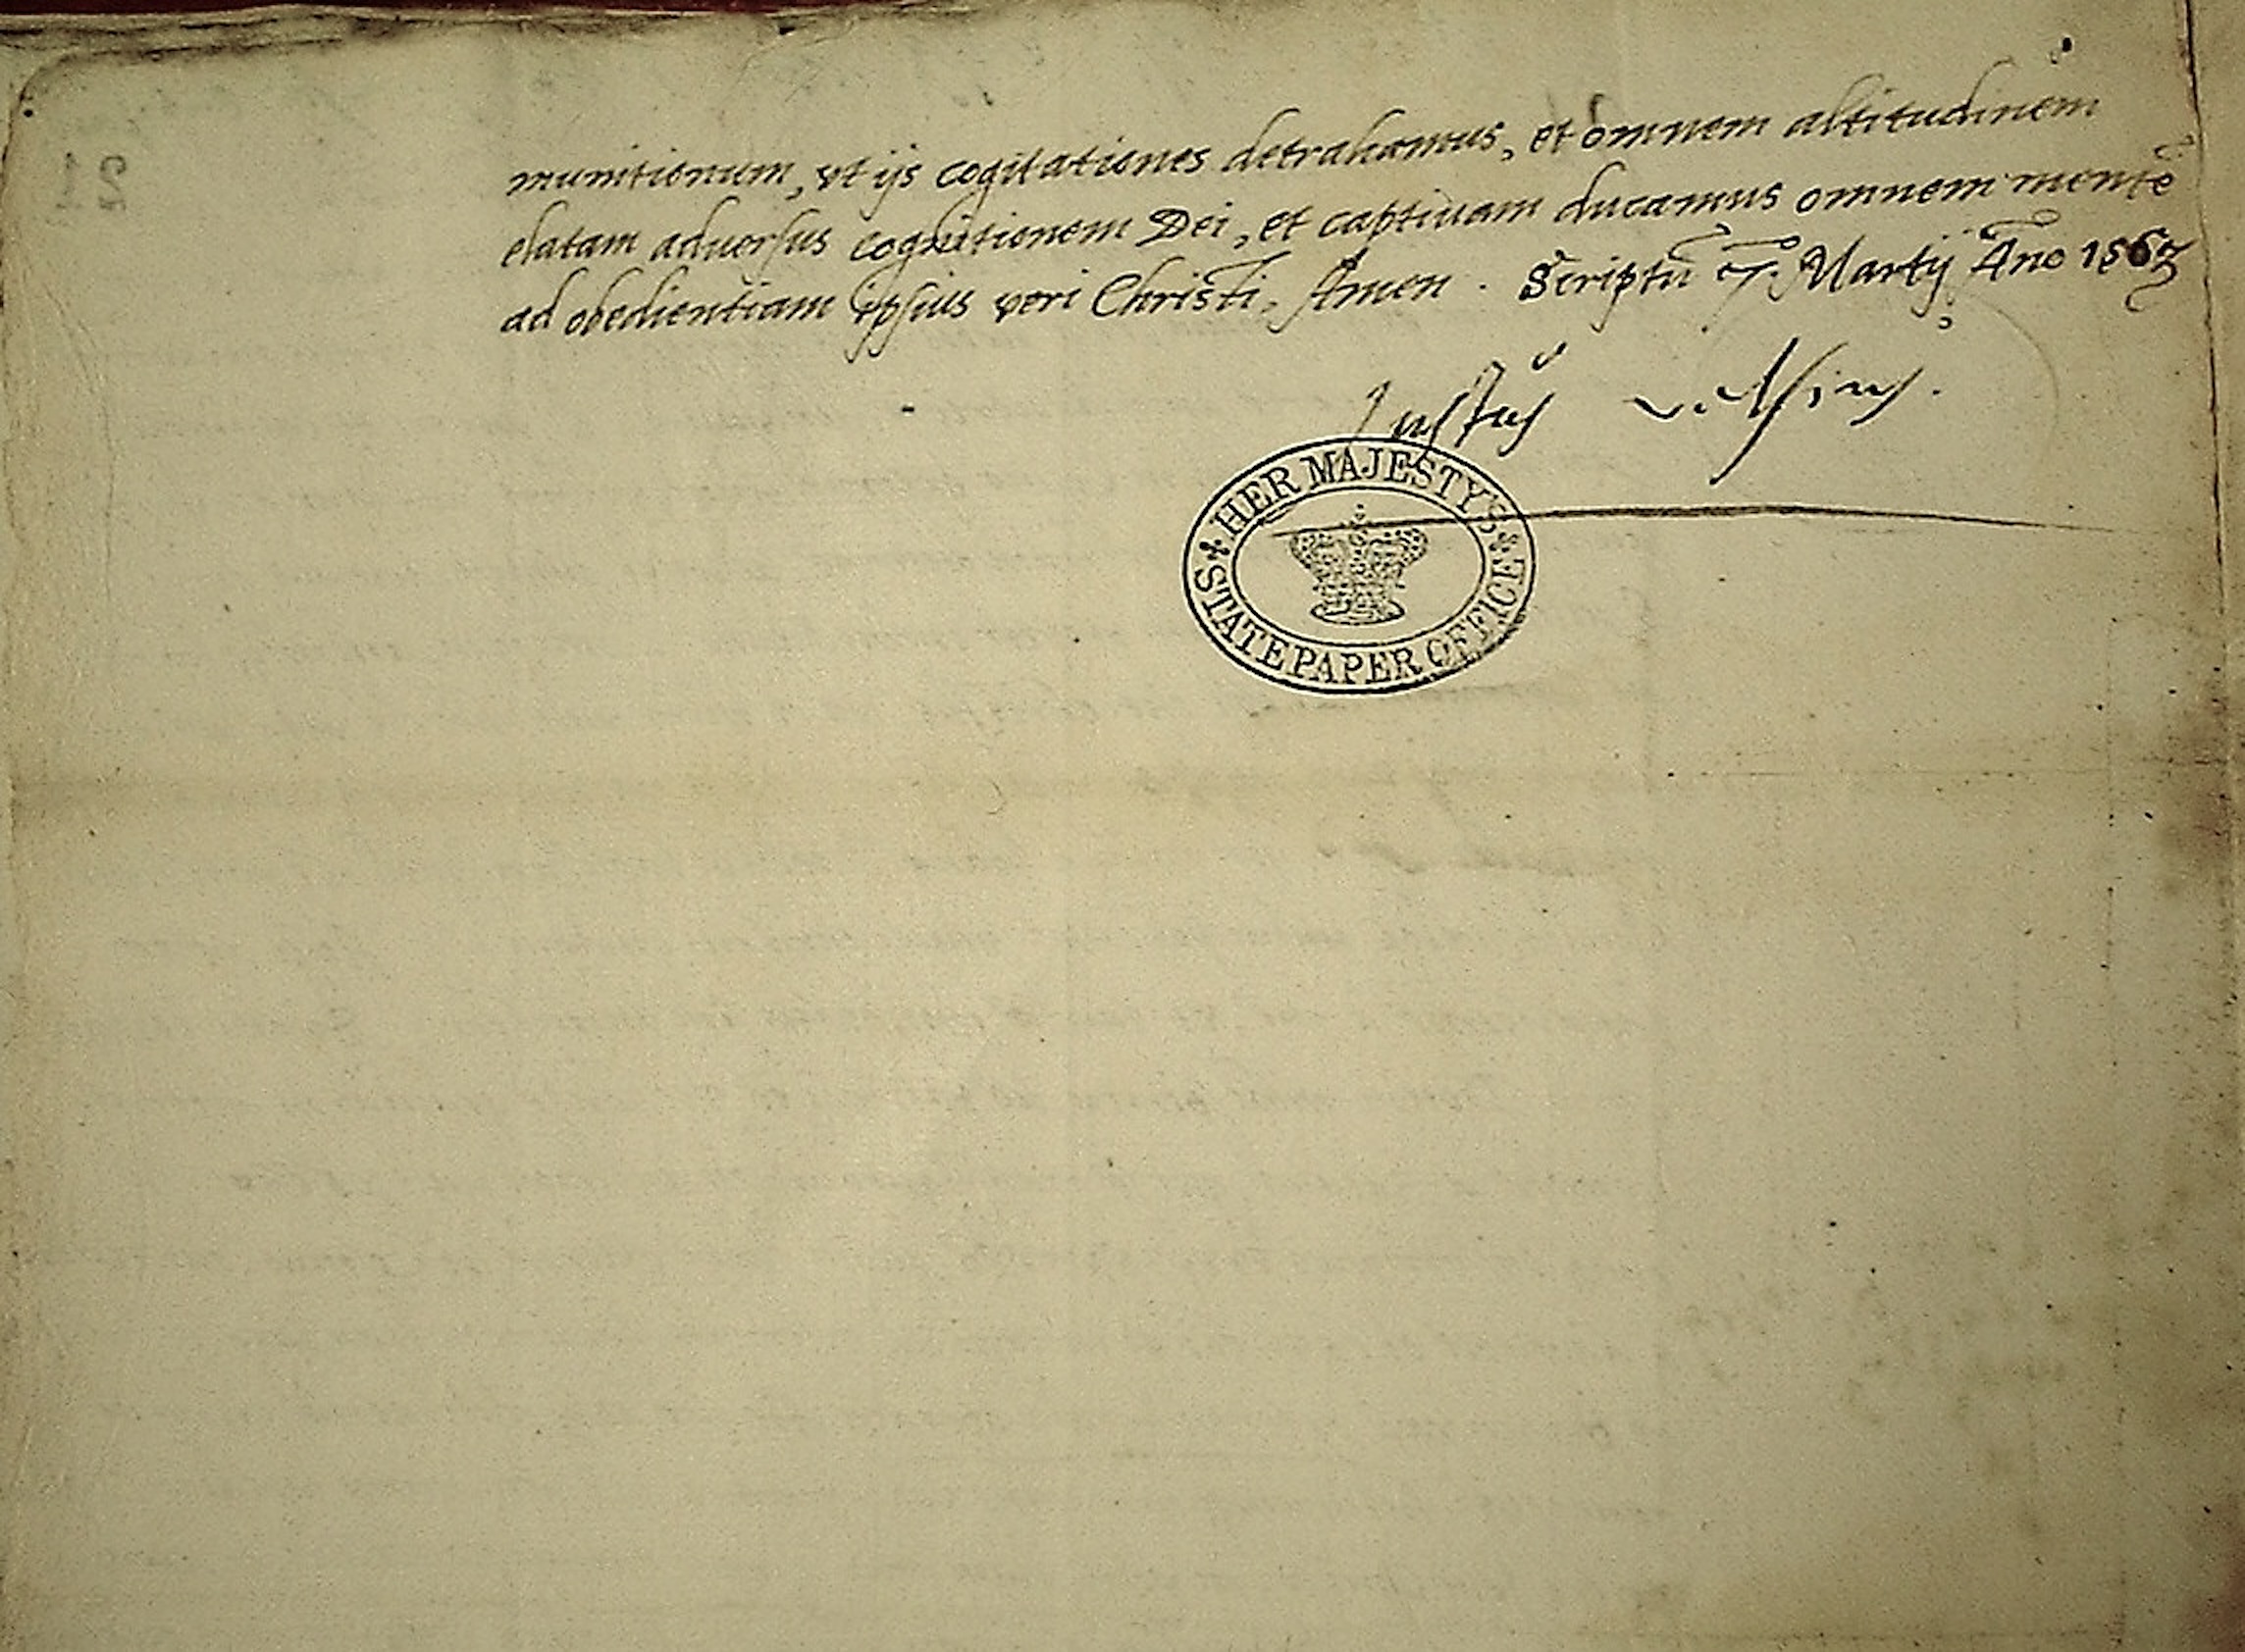 munitionum, vt ijs cogitationes detrahamus, et omnem altitudinem
elatam aduersus cognitionem Dei, et captiuam ducamus omnem mentē
ad obedientiam ipsius veri Christi, Amen. Scriptū 7. Martij Āno 1563
Justus velsius.
HER MAJESTY'S
STATE PAPER OFFICE
21